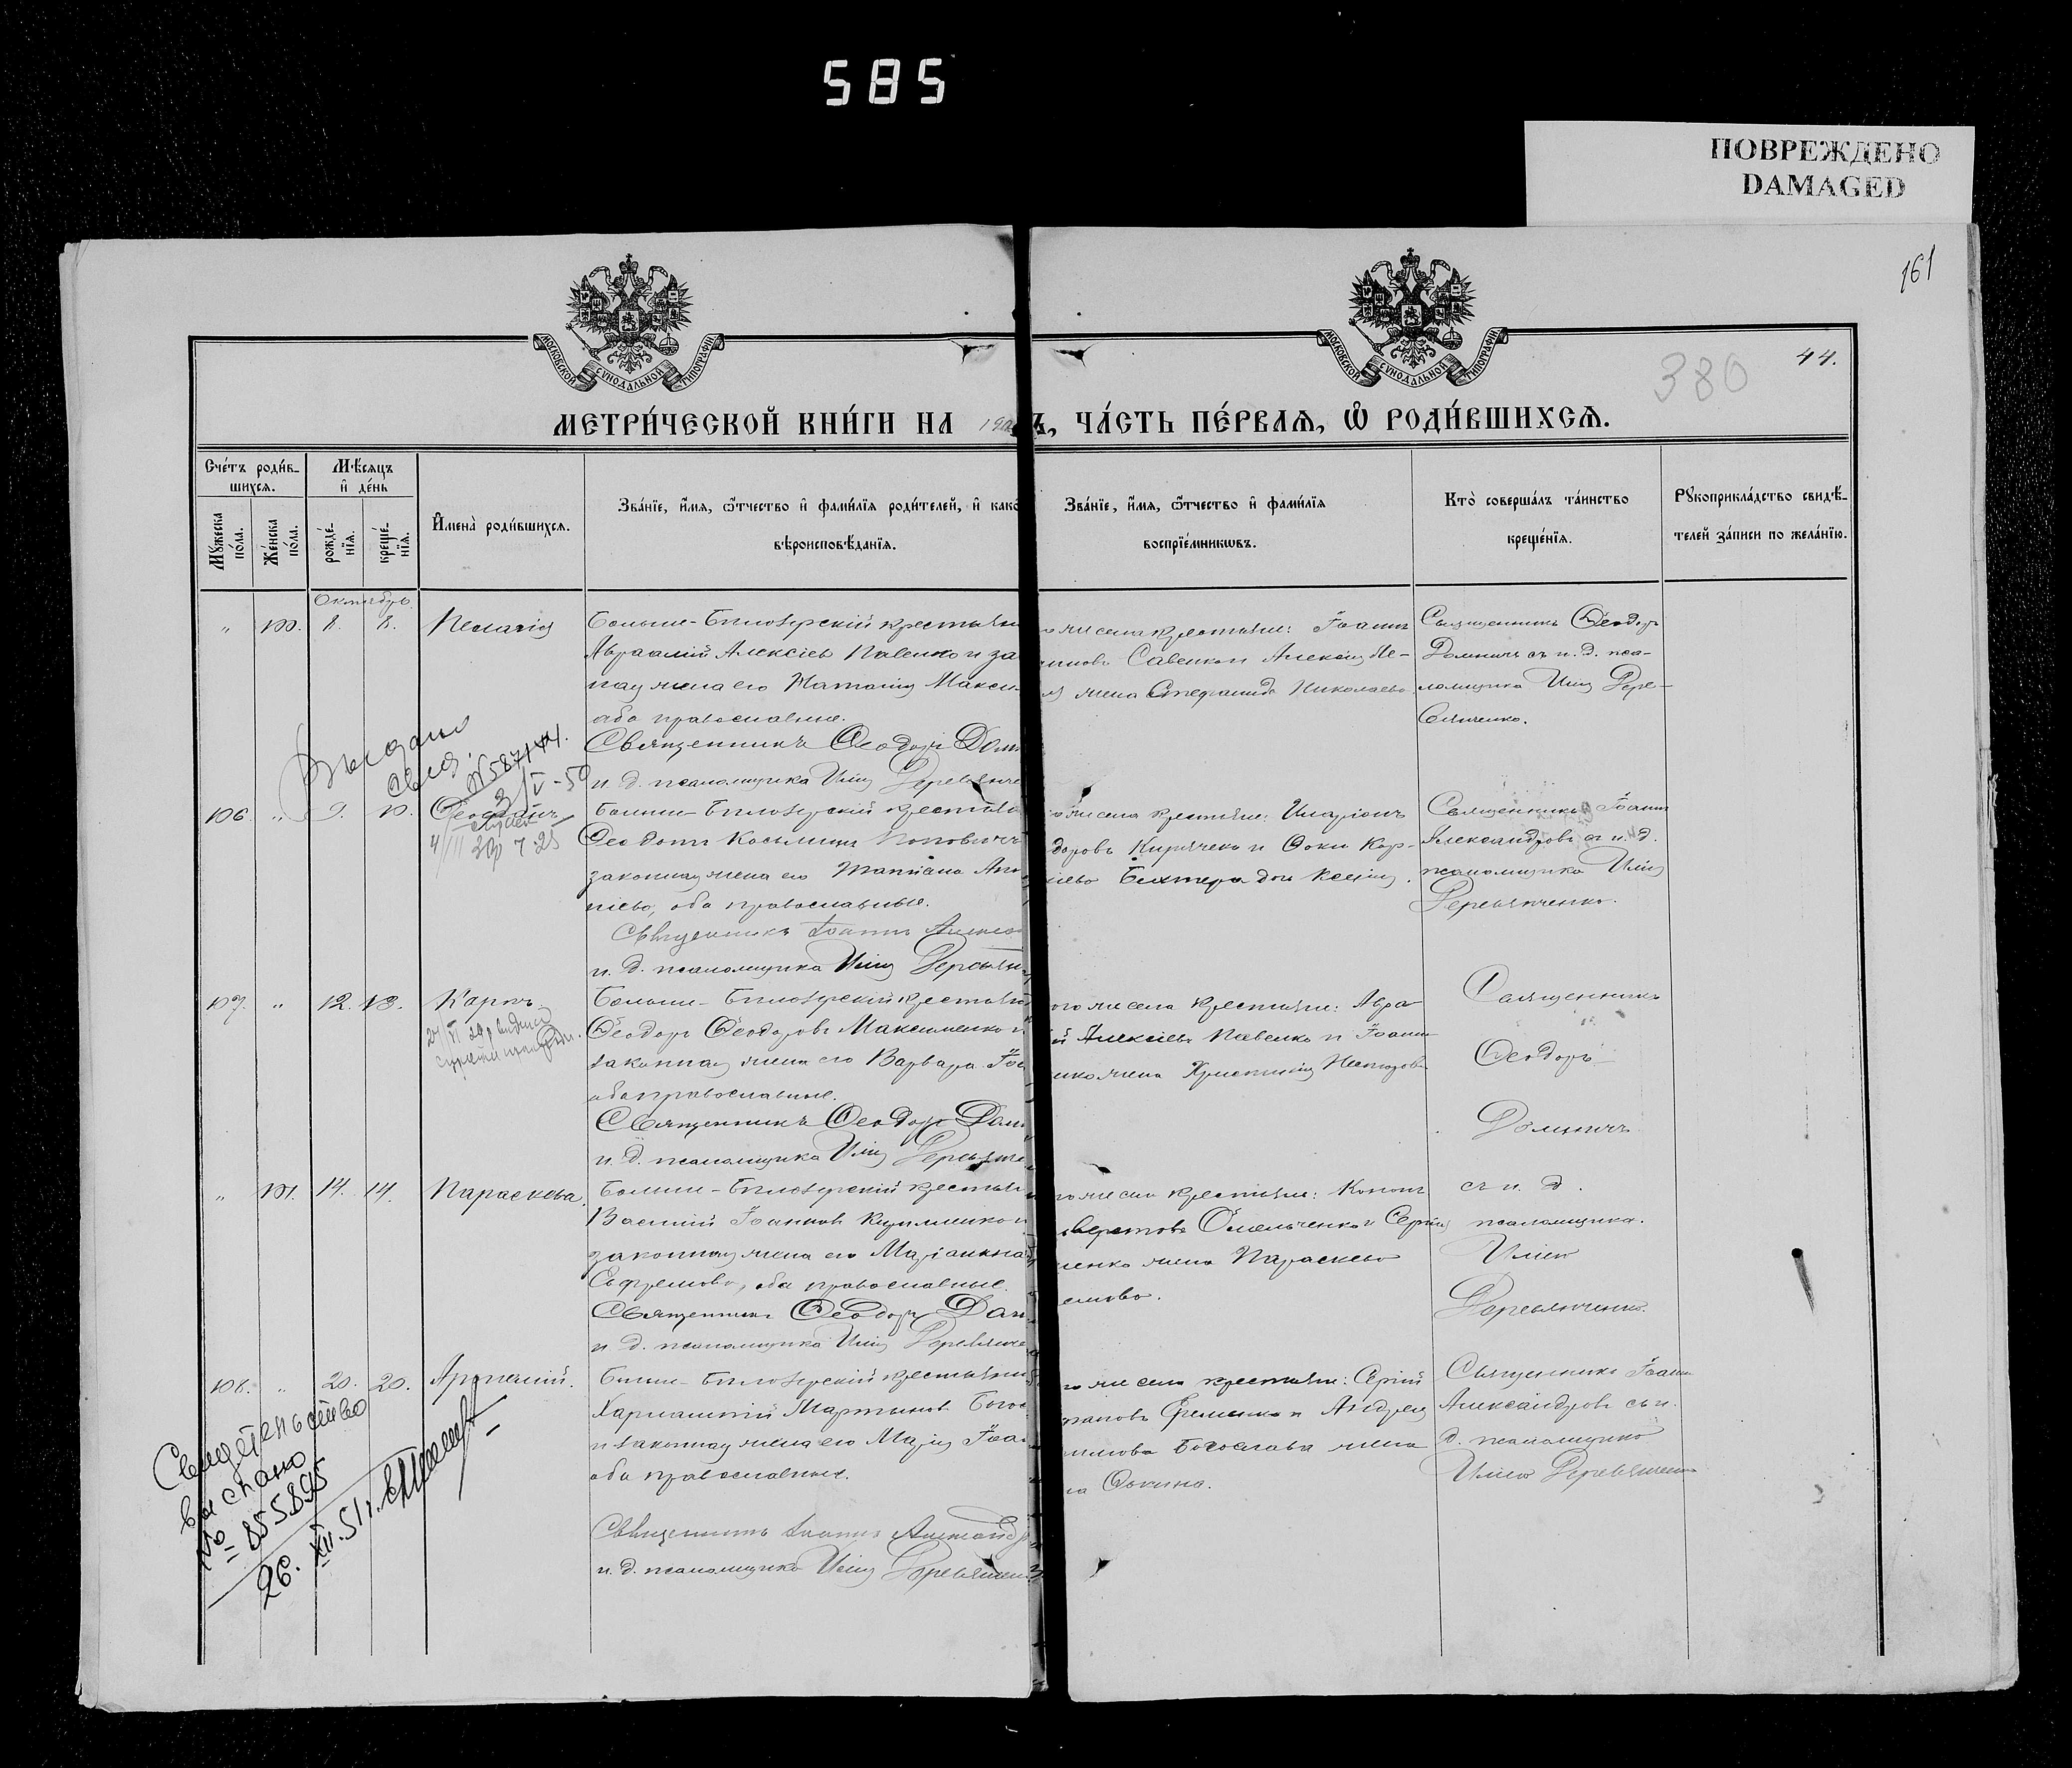 585
ПОВРЕЖДЕНО
DAMAGED
161
МОСКОВСКОЙ СѴНОДАЛЬНОЙ ТИПОГРАФІИ
МОСКОВСКОЙ СѴНОДАЛЬНОЙ ТИПОГРАФІИ
380
44.
МЕТРИ́ЧЕСКОЙ КНИ́ГИ НА 190
Ъ, ЧА́СТЬ ПЕ́РВАѦ, Ѽ РОДИ́ВШИХСѦ.
Сче́тъ роди́в-
шихсѧ.
Мѣ́сѧцъ
и҆ де́нь
Мꙋжеска по́ла.
Же́нска по́ла.
рожде́-нїѧ.
креще́-нїѧ.
И҆мена̀ роди́вшихсѧ.
Зва́нїе, и҆́мѧ, ѻ҆́тчество и҆ фами́лїѧ роди́телей, и҆ како
вѣроисповѣ́данїѧ.
Зва́нїе, и҆́мѧ, ѻ҆́тчество и҆ фами́лїѧ
воспрїе́мникѡвъ.
Кто̀ соверша́лъ та́инство
креще́нїѧ.
Рꙋкоприкла́дство свидѣ́-
телей за́писи по жела́нїю.
Октябрь
" 101. 8. 8. Пелагія
Больше-Бѣлозерскій крестьяни
Авраамій Алексіевъ Павенко и за
ная жена его Наталія Макси-
оба православные.
Священникъ Ѳеодоръ Дом
и. д. псаломщика Илія Деревянче
крестьяне: Іоаннъ
Савенко и Алексія Пе-
жена Стефанида Николаева
Священникъ Ѳеодоръ
Домничъ съ и. д. пса-
ломщика Илія Дере-
вянченко.
Выдано
свид.
№587144.
3/V-50
106. " 9. 10. Ѳеодотъ
Больше-Бѣлозерскій крестьян
Ѳеодотъ Косьминъ Поповичъ
законная жена его Татіана
оба православные.
Священникъ Іоаннъ Алекса
и. д. псаломщика Илія Деревян
крестьяне: Иларіонъ
доровъ Киричекъ и Фоки Кар-
Бехтера дочь Ксенія.
Священникъ Іоаннъ
Александровъ съ и. д.
псаломщика Илія
Деревянченко.
107. " 12. 13. Карпъ
Больше-Бѣлозерскій крестьян
Ѳеодоръ Ѳеодоровъ Максименко и
законная жена его Варвара Іоа
оба православные.
Священникъ Ѳеодоръ Дом
и. д. псаломщика Илія Деревянче
ого же села крестьяне: Авра
й Алексіевъ Павенко и Іоанн
жена Христинія Несторова
Священникъ
Ѳеодоръ
Домничъ
" 101. 14. 14. Параскева.
Больше-Бѣлозерскій крестьян
Василій Іоанновъ Кириленко и
законная жена его Маріанна
Ефремова, оба православные.
Священникъ Ѳеодоръ Дом
и. д. псаломщика Илія Деревянче
го же села крестьяне: Кононъ
Омельченко и Сергія
енко жена Параскева
емова.
съ и. д.
псаломщика.
Илія
Деревянченко.
108. " 20. 20. Артемій.
Больше-Бѣлозерскій крестьяни
Харлампій Мартыновъ Богос
и законная жена его Марія Іоа
оба православные.
Священникъ Іоаннъ Александр
и. д. псаломщика Илія Деревянчен
го же села крестьяне: Сергій
Еременко и Андрея
Богослава жена
на Фокина.
Священникъ Іоанн
Александровъ съ и.
д. псаломщика
Илія Деревянченко
Свидетельство
выслано
№ 855895
26. XII. 51 г.